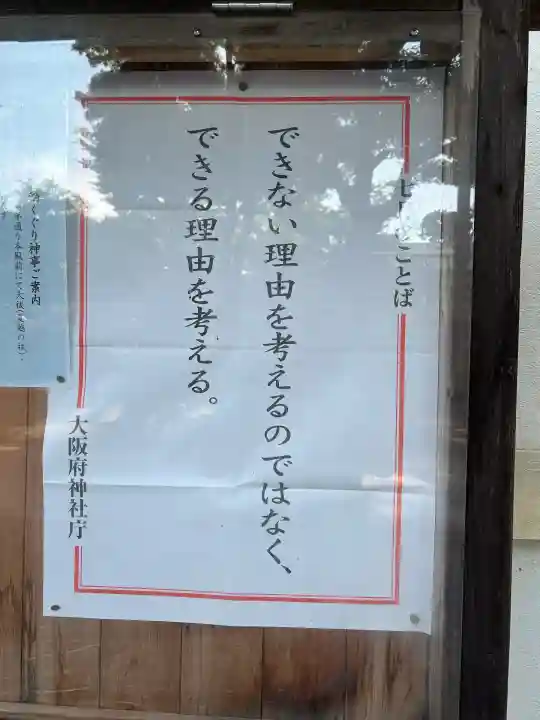 ことば
できない理由を考えるのではなく、
できる理由を考える。
大阪府神社庁
くぐり神事ご案内